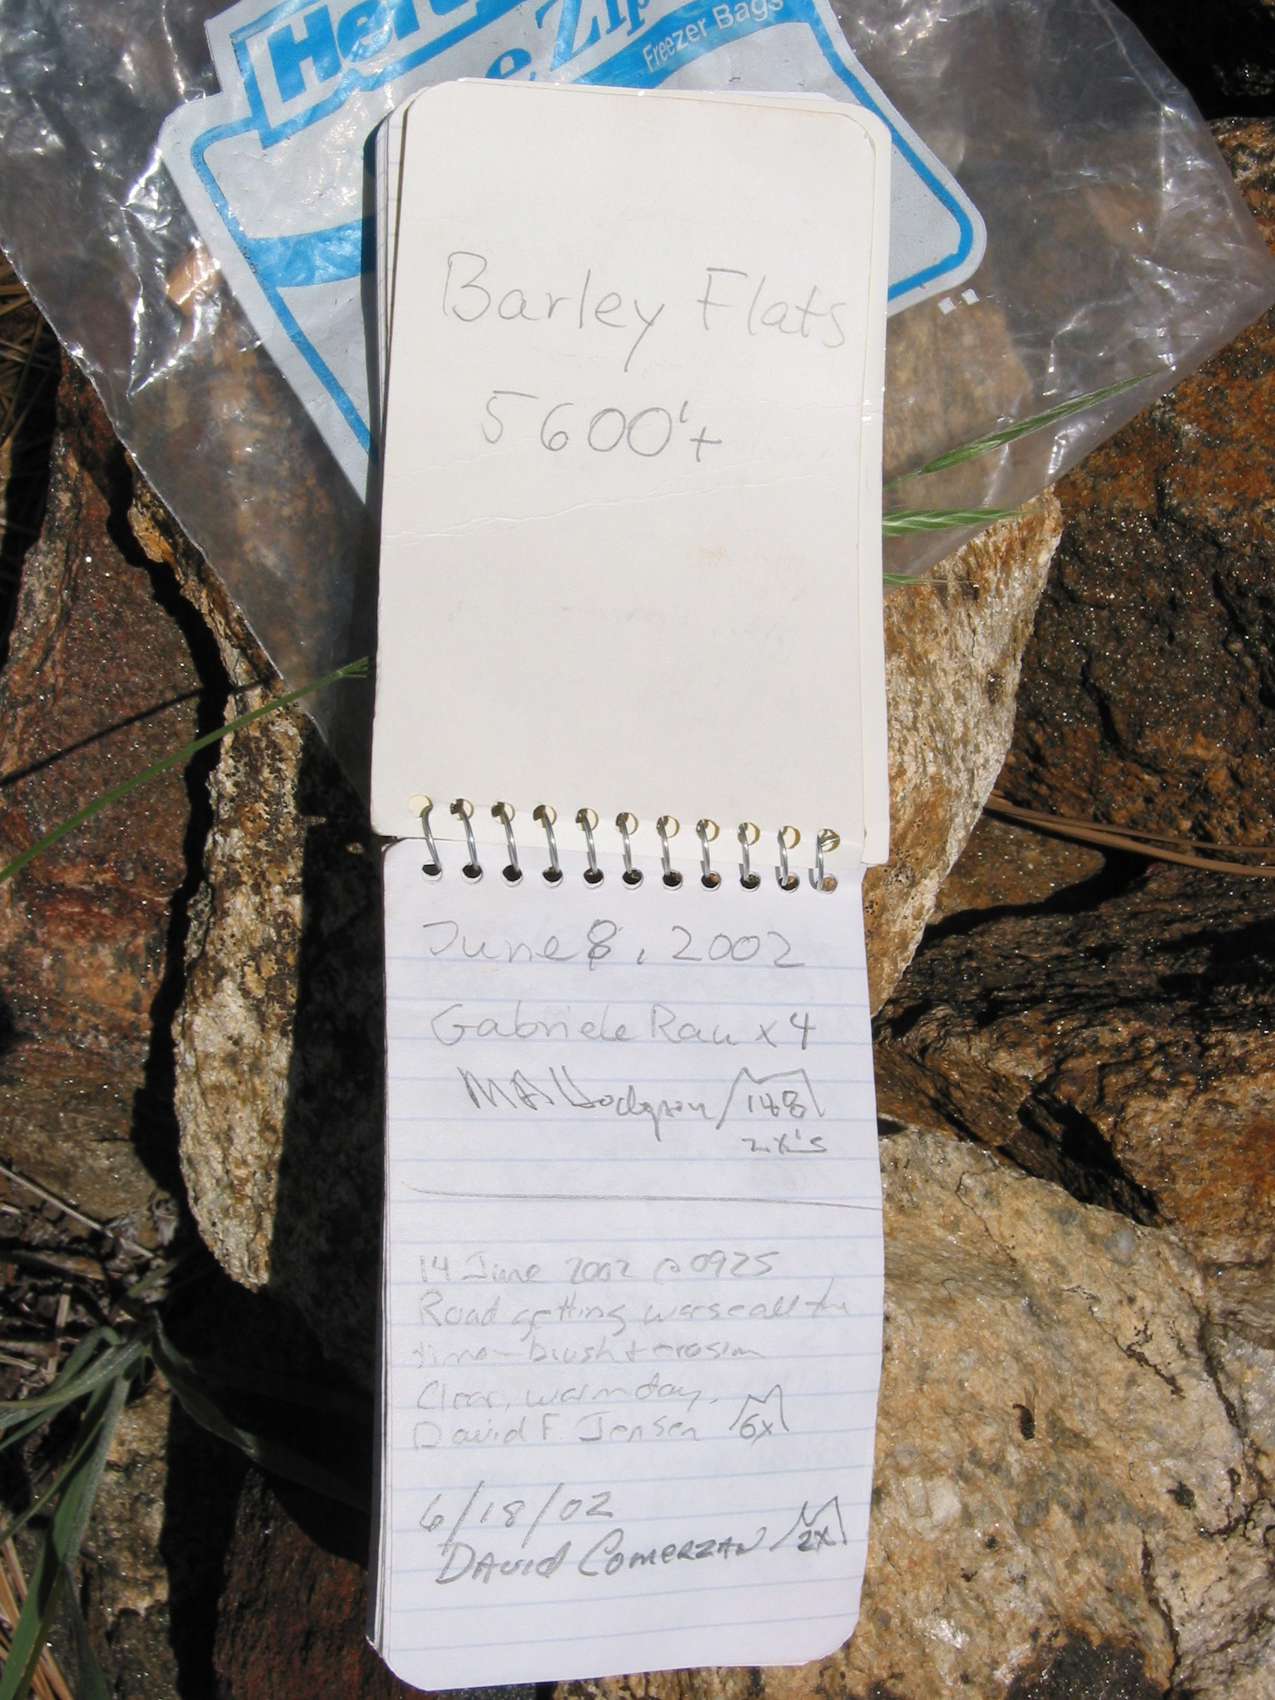 Freezer Bags
Barley Flats
5600'+
June 8, 2002
Gabriele Rau x 4
MA Hodgson
2x's
14 June 2002 @ 0925
Road getting worse all the
time - brush + erosion
Clear, warm day.
David F. Jensen 6x
6/18/02
David Comerzan 2x